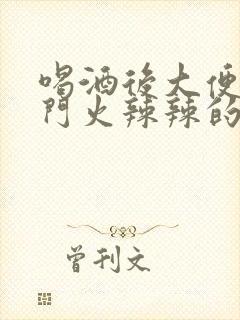 喝酒後大便
門火辣辣的
曾刊文